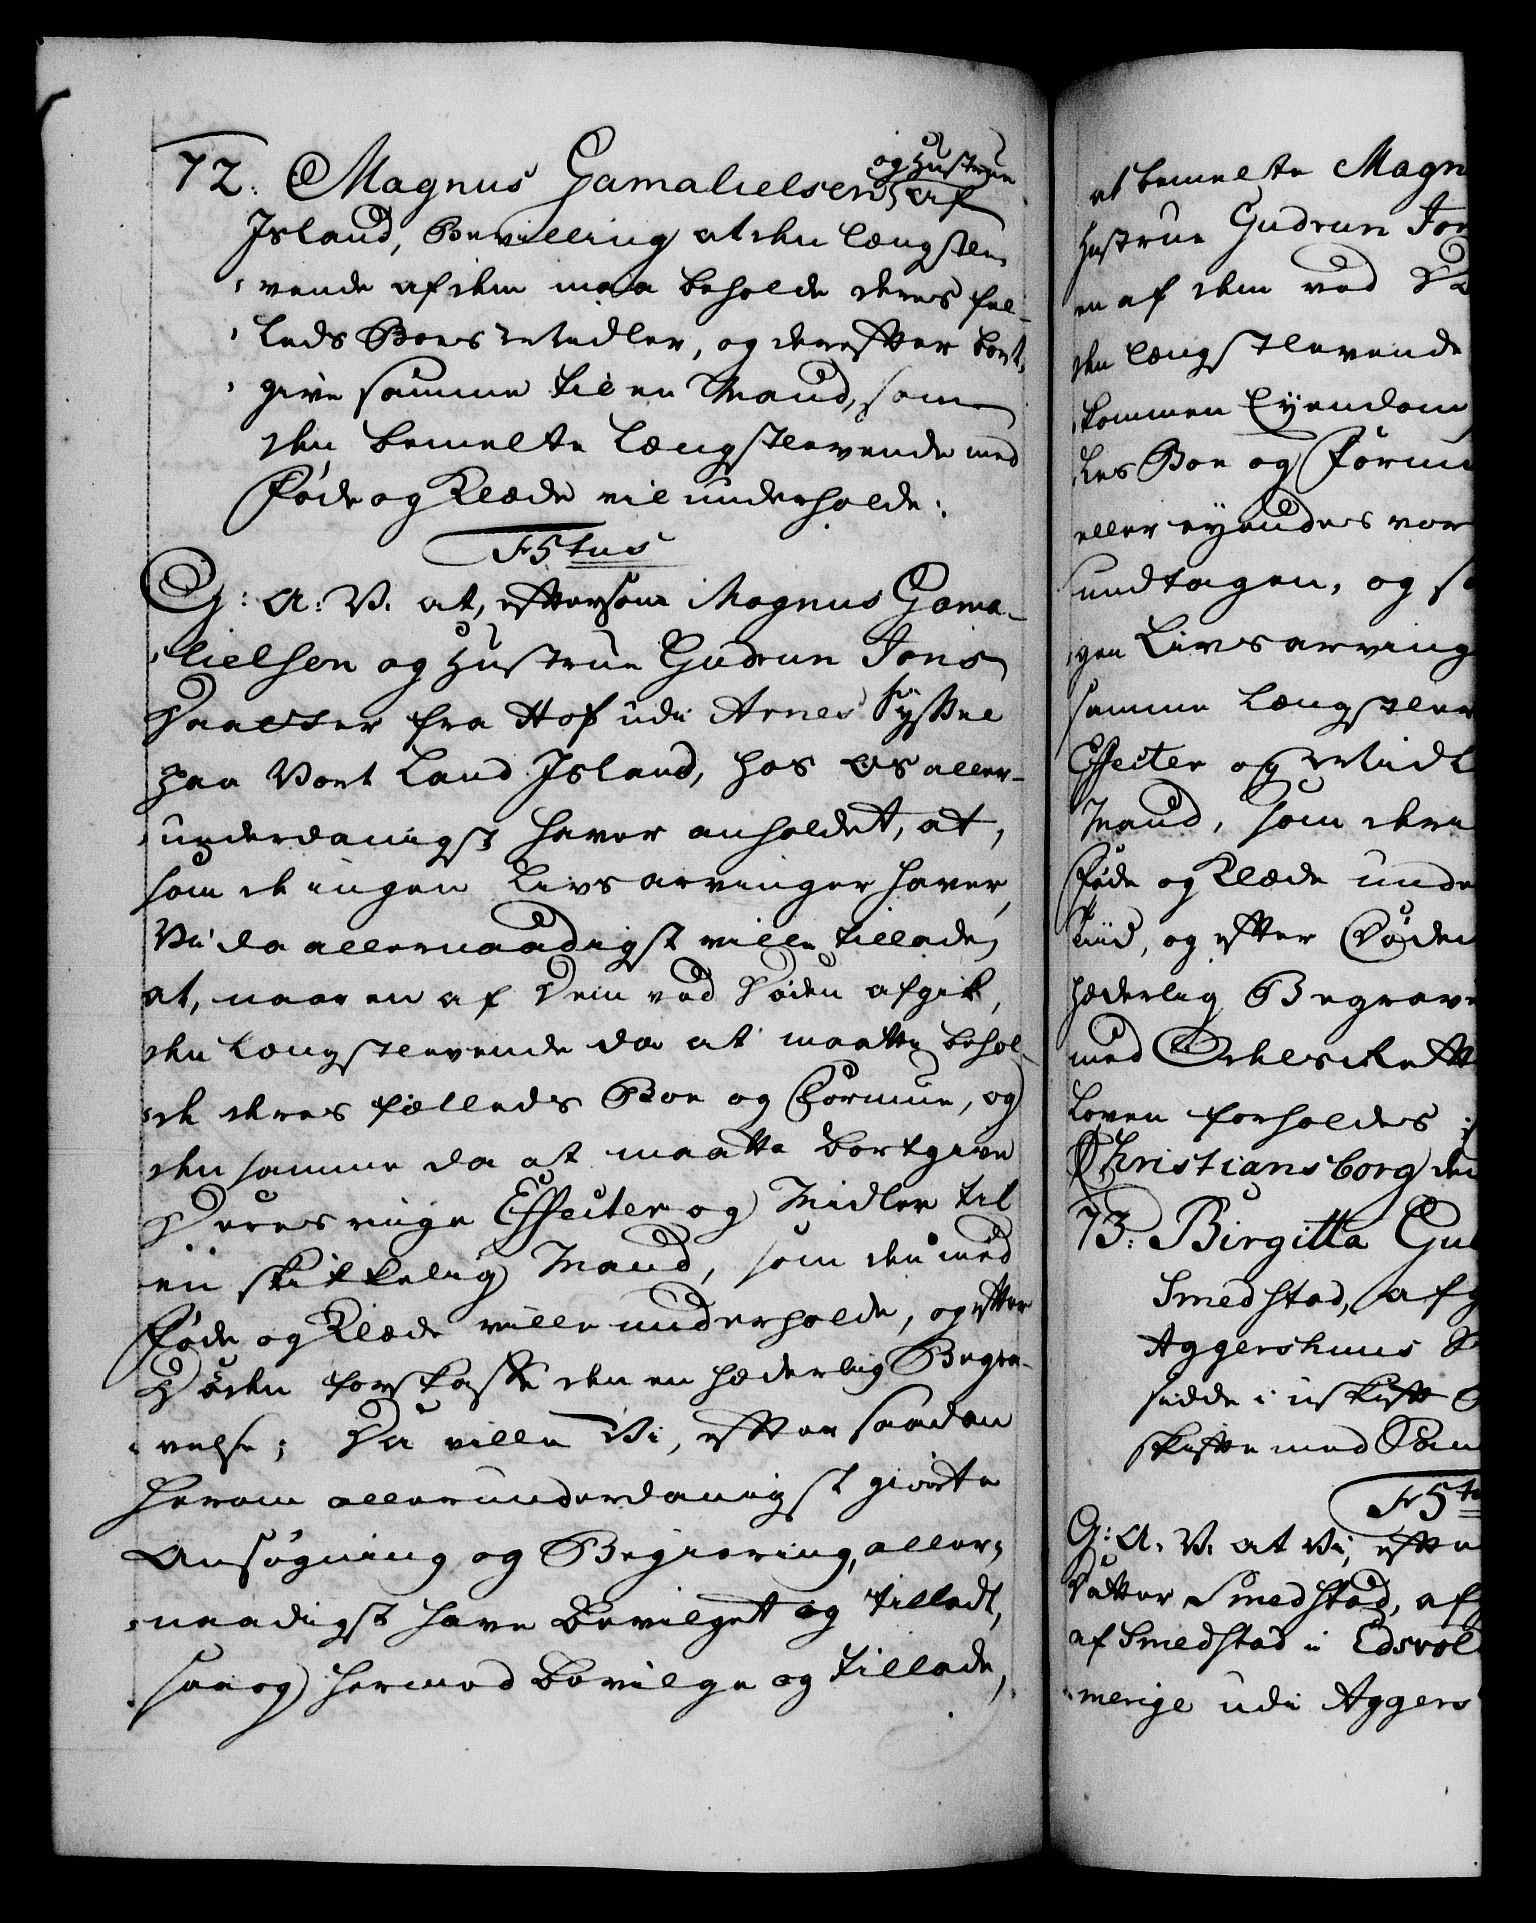 72. Magnus Gamalielsen og Hustrue af
Island, Bevilling at den længstle-
vende af dem maa beholde deres fel-
leds Boes Midler, og derefter bort-
give samme til en Mand, som
den bemelte Længstlevende med
Føde og Klæde vil underholde.
Fr 5tus
G: A: V. at, eftersom Magnus Gama-
lielsen og Hustrue Gudrun Jons
Daatter fra Hof udi Arnes Syssel
paa Vort Land Island, hos Os aller-
underdanigst haver anholdet, at,
som de ingen Livs arvinger haver,
Vi da allernaadigst ville tillade,
at, naar en af Dem ved Døden afgik,
den Længstlevende da at maatte behol-
de deres fælleds Boe og Formue, og
den samme da at maatte bortgive
Deres ringe Effecter og Midler til
en skikkelig Mand, som den med
Føde og Klæde ville underholde, og efter
Døden forskaffe den en hæderlig Begra-
velse; Da ville Vi, efter saadan
herom allerunderdanigst giorte
Ansøgning og Begiering, aller-
naadigst have bevilget og tilladt,
saa og hermed bevilge og tillade,
at bemelte Magn
Hustrue Gudrun Jon
en af dem ved D
den længstlevende
kommen Eyendom
des Boe og Formu
eller eyendes vor
undtagen, og s
gen Livs arving
samme Længstlev
Effecter og Midl
Mand, som den
Føde og Klæde unde
tiid, og efter Døden
hæderlig Begrave
med
Loven forholdes
Christiansborg den
73. Birgitta Gu
Smedstad, af
Aggershuus
sidde i uskift
skifte med Sam
Fr 5t
G: A. V. at Vi, efte
Datter Smedstad, af
af Smedstad i Edsvol
merige udi Aggers